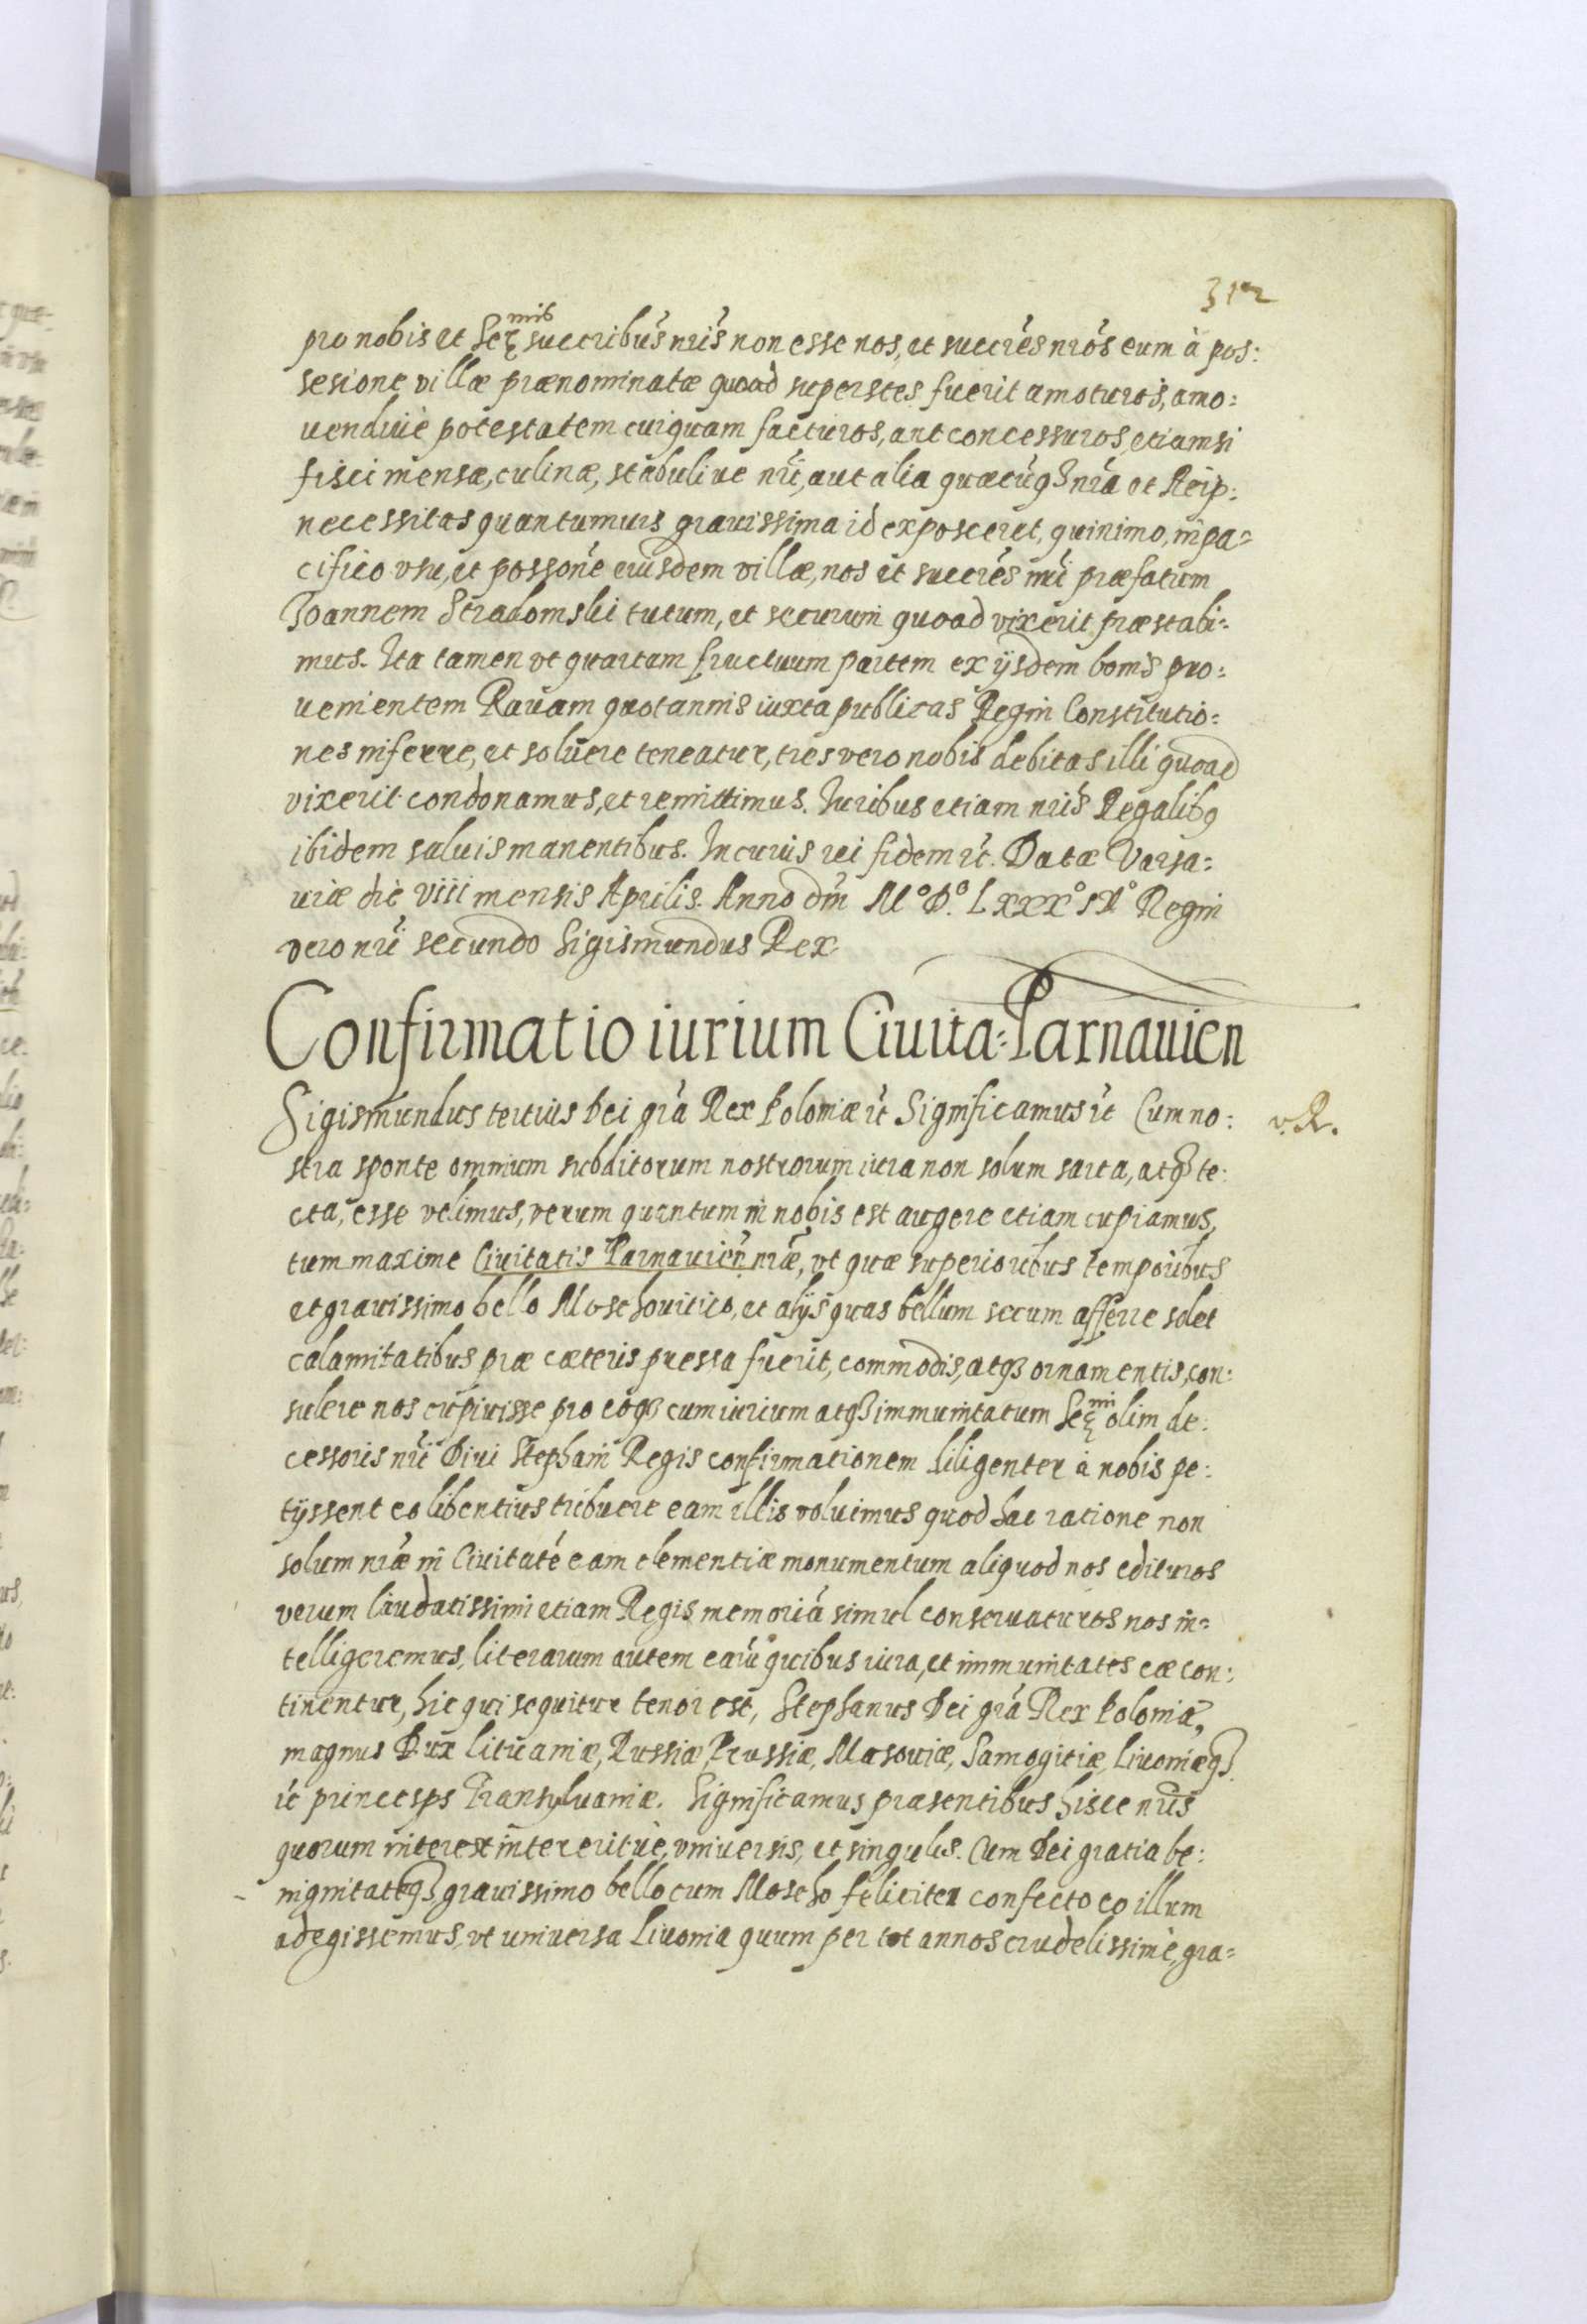 312
pro nobis et Ser mis succribus nris non esse nos, et succres nros eum à pos:
sesione villæ prænominatæ quoad superstes fuerit amoturos, amo:
uendiuè potestatem cuiquam facturos, aut concessuros, etiamsi
fisci mensæ, culinæ, stabuliue nri, aut alia quæcūq3 nrā et Reip:
necessitas quantumuis grauissima id exposceret, quinimo, in pa=
cifico vsu, et possone eiusdem villæ, nos et succres nri præfatum
Joannem Stradomski tutum, et securum quoad vixerit præstabi:
mus. Ita tamen vt quartam fructuum partem ex ijsdem bonis pro:
uenientem Rauam quotannis iuxta publicas Regni Constitutio:
nes inferre, et soluere teneatur, tres vero nobis debitas illi quoad
vixerit condonamus, et remittimus. Iuribus etiam nris Regalibq
ibidem saluis manentibus. In cuius rei fidem ec. Datæ Varsa:
uiæ die VIII mensis Aprilis. Anno dni M° D° Lxxx° Regni
vero nri secundo Sigismundus Rex
Confirmatio iurium Ciuita: Parnauien
Sigismundus tertius Dei grā Rex Poloniæ ec Significamus ec Cum no: v. R.
stra sponte omnium subditorum nostrorum iura non solum sarta, atq3 te:
cta, esse velimus, verum quantum in nobis est augere etiam cupiamus,
tum maxime Ciuitatis Parnauien nræ, vt quæ superioribus temporibus
et grauissimo bello Moschouitico, et alijs quas bellum secum afferre solet
calamitatibus præ cæteris pressa fuerit, commodis, atq3 ornamentis, con:
sulere nos cupiuisse pro eoq3 cum iurium atq3 immunitatum Ser mi olim de:
cessoris nri Diui Stephani Regis confirmationem diligenter à nobis pe:
tijssent eo libentius tribuere eam illis voluimus quod hac ratione non
solum nræ in Ciuitatē eam clementiæ monumentum aliquod nos edituros
verum laudatissimi etiam Regis memoriā simul conseruaturos nos in=
telligeremus, literarum autem earū quibus iura, et immunitates eæ con:
tinentur, hic qui sequitur tenor est, Stephanus Dei grā Rex Poloniæ,
magnus Dux Lituaniæ, Russiæ Prussiæ, Masouiæ, Samogitiæ, Liuoniæq3
ec princesps Transyluaniæ. Significamus præsentibus hisce nris
quorum interest intereritue, vniuersis, et singulis. Cum Dei gratia be:
nignitateq3 grauissimo bello cum Moscho feliciter confecto eo illum
adegissemus, vt vniuersa Liuonia quum per tot annos crudelissimè, gra=